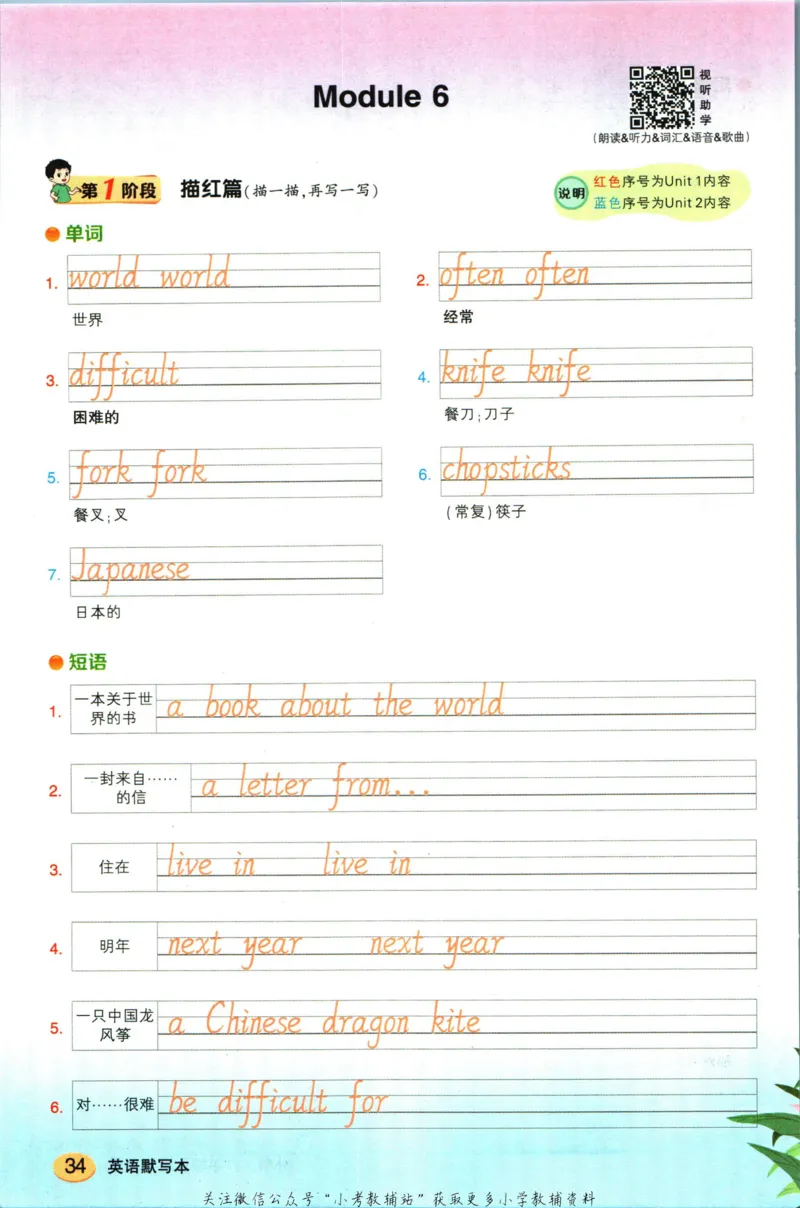 Module 6
视听助学
(朗读&听力&词汇&语音&歌曲)
第1阶段 描红篇(描一描,再写一写)
说明 红色序号为Unit 1内容
蓝色序号为Unit 2内容
单词
1. world world
世界
2. often often
经常
3. difficult
困难的
4. knife knife
餐刀;刀子
5. fork fork
餐叉;叉
6. chopsticks
(常复)筷子
7. Japanese
日本的
短语
1. 一本关于世界的书 a book about the world
2. 一封来自……的信 a letter from...
3. 住在 live in live in
4. 明年 next year next year
5. 一只中国龙风筝 a Chinese dragon kite
6. 对……很难 be difficult for
34 英语默写本
关注微信公众号“小考教辅站”获取更多小学教辅资料